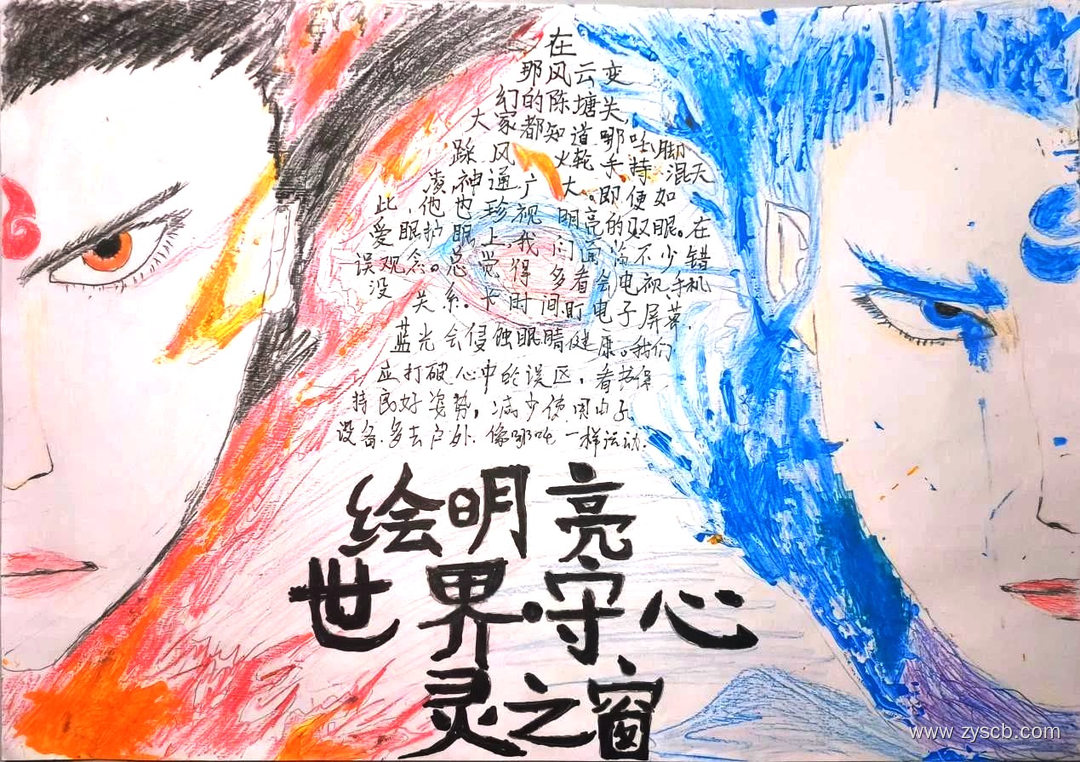 在
那风云变
幻的陈塘关,
大家都知道哪吒脚
踩风火轮手持混天
凌神通广大。即便如
此,他也珍视明亮的双眼。在
爱眼护眼上,我们前荡不少错
误观念。总觉得多看会电视、手机
没关系。长时间盯电子屏幕,
蓝光会侵蚀眼睛健康。我们
应打破心中的误区,看书保
持良好姿势,减少使用电子
设备.多去户外.像哪吒一样运动.
绘明亮
世界·守心
灵之窗
www.zyscb.com